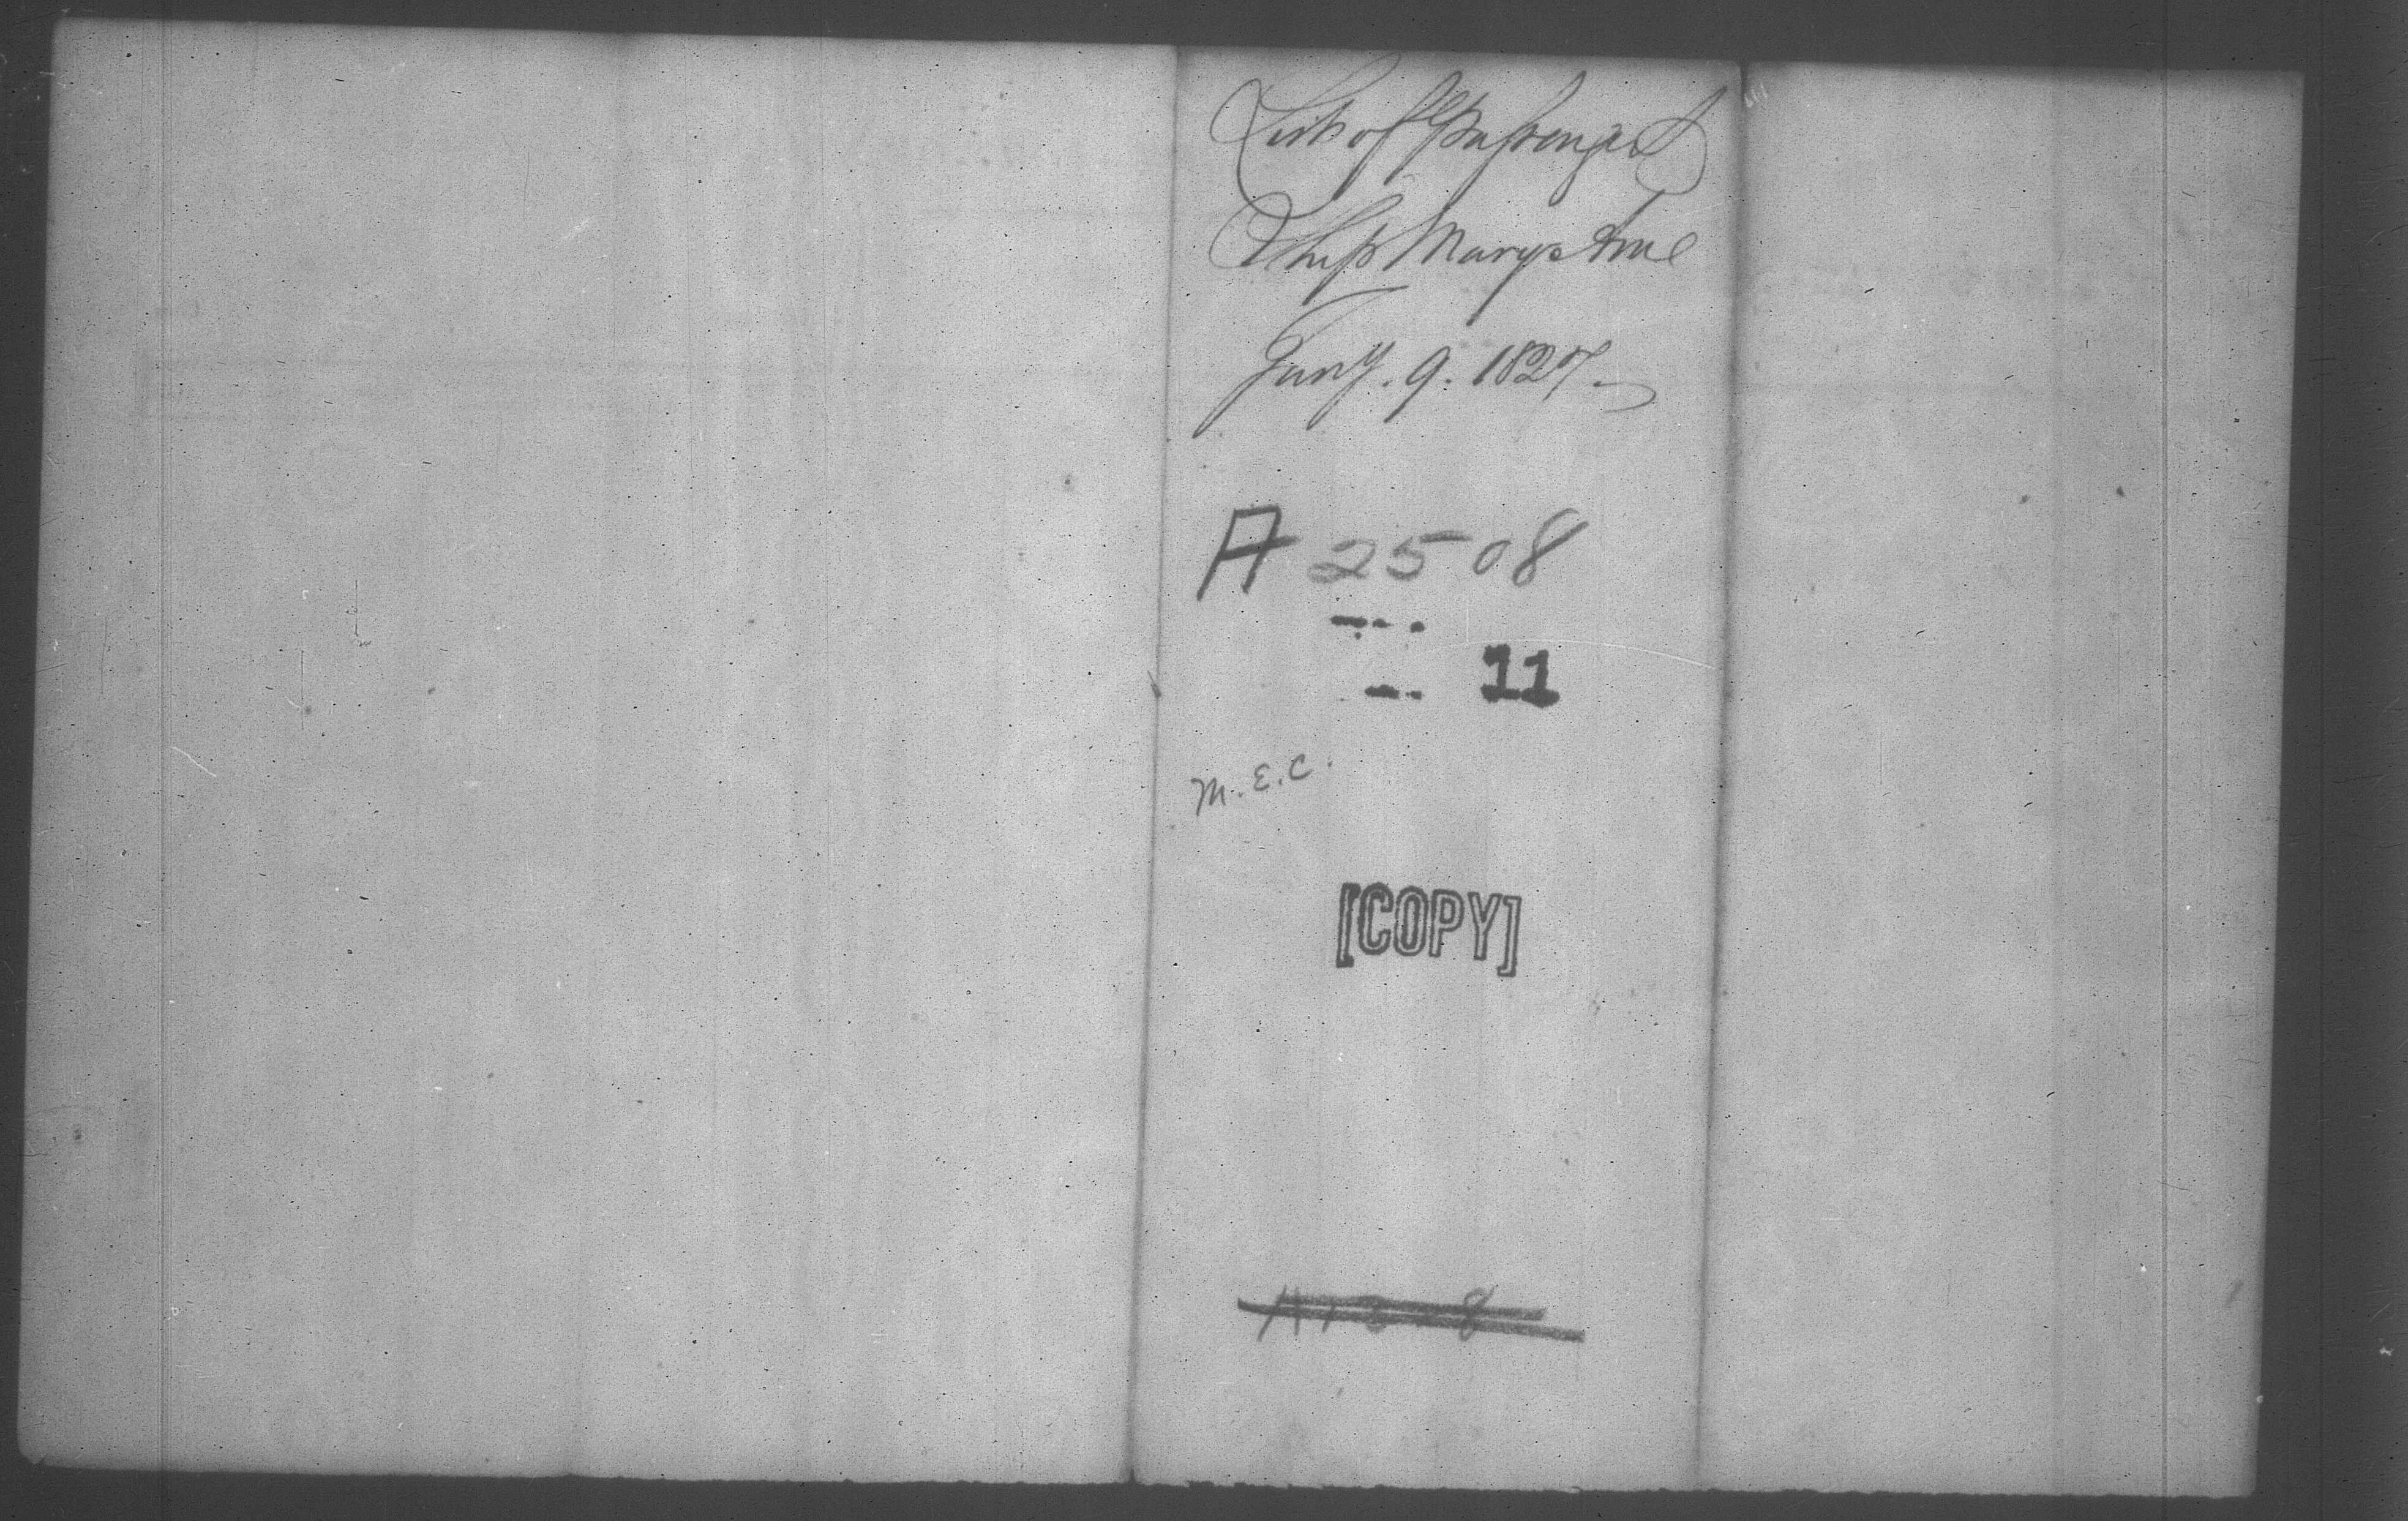 List of Passengers
Ship Mary & Ann
Jany. 9. 1827.
A 2508
11
M.E.C.
[COPY]